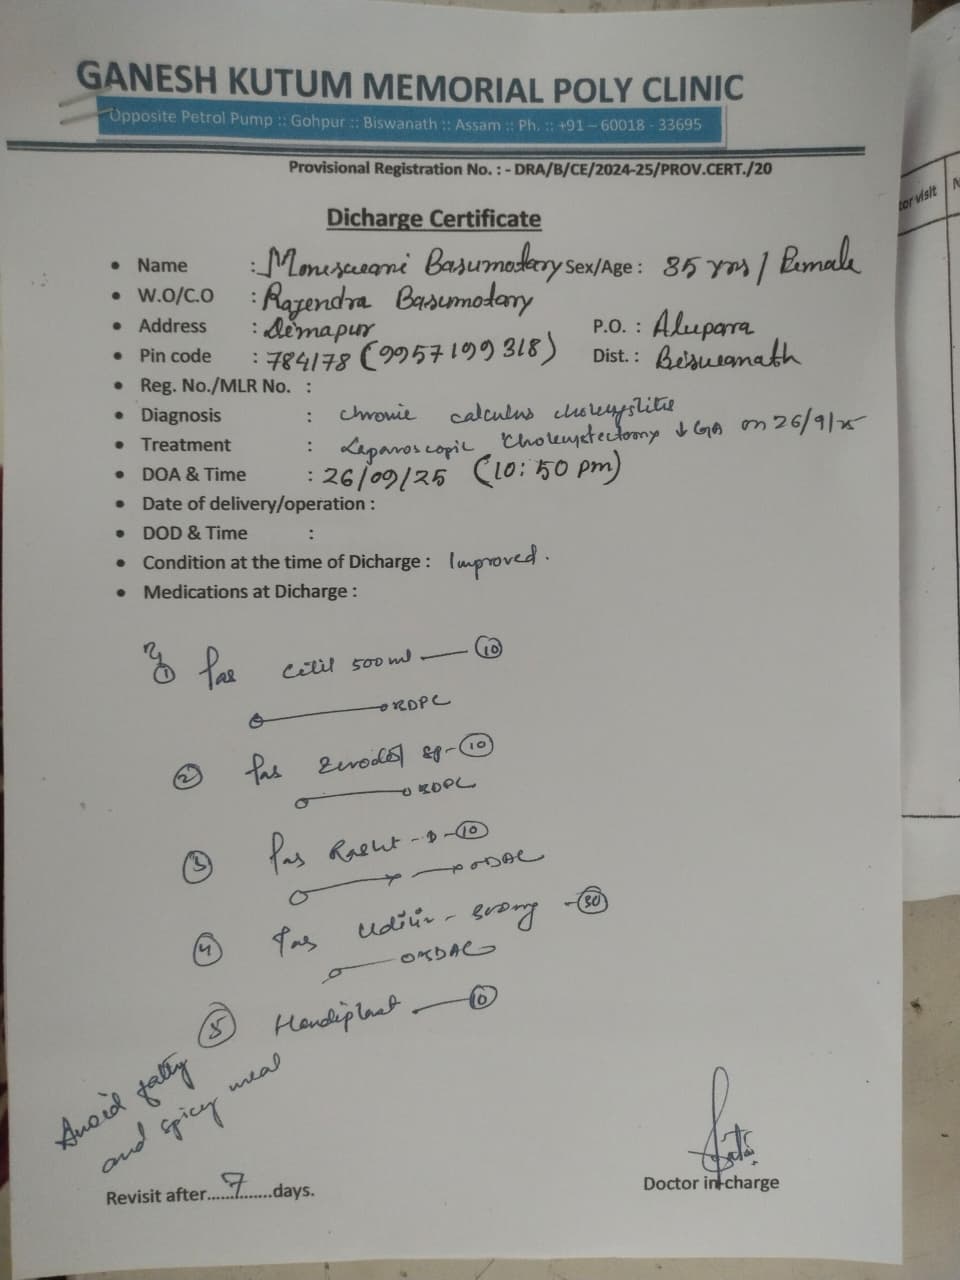 GANESH KUTUM MEMORIAL POLY CLINIC
Opposite Petrol Pump :: Gohpur :: Biswanath :: Assam :: Ph. :: +91 – 60018 - 33695
Provisional Registration No. : - DRA/B/CE/2024-25/PROV.CERT./20
tor visit
Dicharge Certificate
• Name : Basumotary Sex/Age : 35 yrs / Female
• W.O/C.O : Rajendra Basumotary
• Address : Demapur P.O. : Alupara
• Pin code : 784178 (9957199318) Dist. : Bisweanath
• Reg. No./MLR No. :
• Diagnosis : chronic calculus cholecystitis
• Treatment : Laparoscopic Cholecystectomy ↓ GA on 26/9/25
• DOA & Time : 26/09/25 (10:50 pm)
• Date of delivery/operation :
• DOD & Time :
• Condition at the time of Dicharge : Improved.
• Medications at Dicharge :
① 500 — ⑩
② sp - ⑩
③ - D - ⑩
④ - ㉚
⑤ Handiplast — ⑩
Avoid fatty
and spicy meal
Revisit after......7......days.
Doctor in-charge